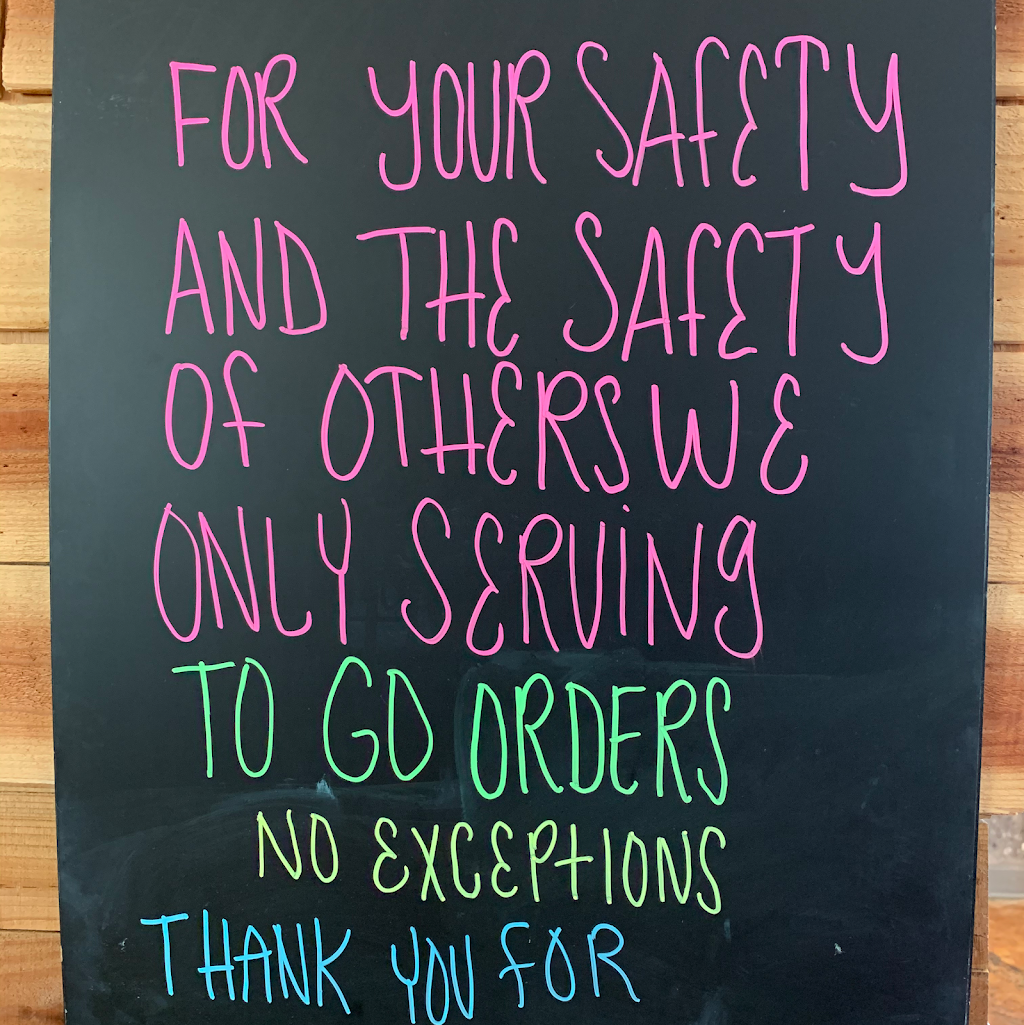 FOR YOUR SAFETY
AND THE SAFETY
OF OTHERS WE
ONLY SERVING
TO GO ORDERS
NO EXCEPTIONS
THANK YOU FOR